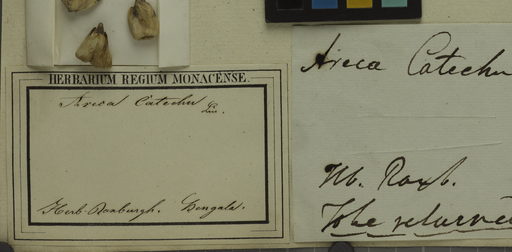 HERBARIUM REGIUM MONACENSE.
Areca Catechu Lin.
Herb. Roxburgh. Bengala.
Areca Catechu
Hb. Roxb.
To be returned